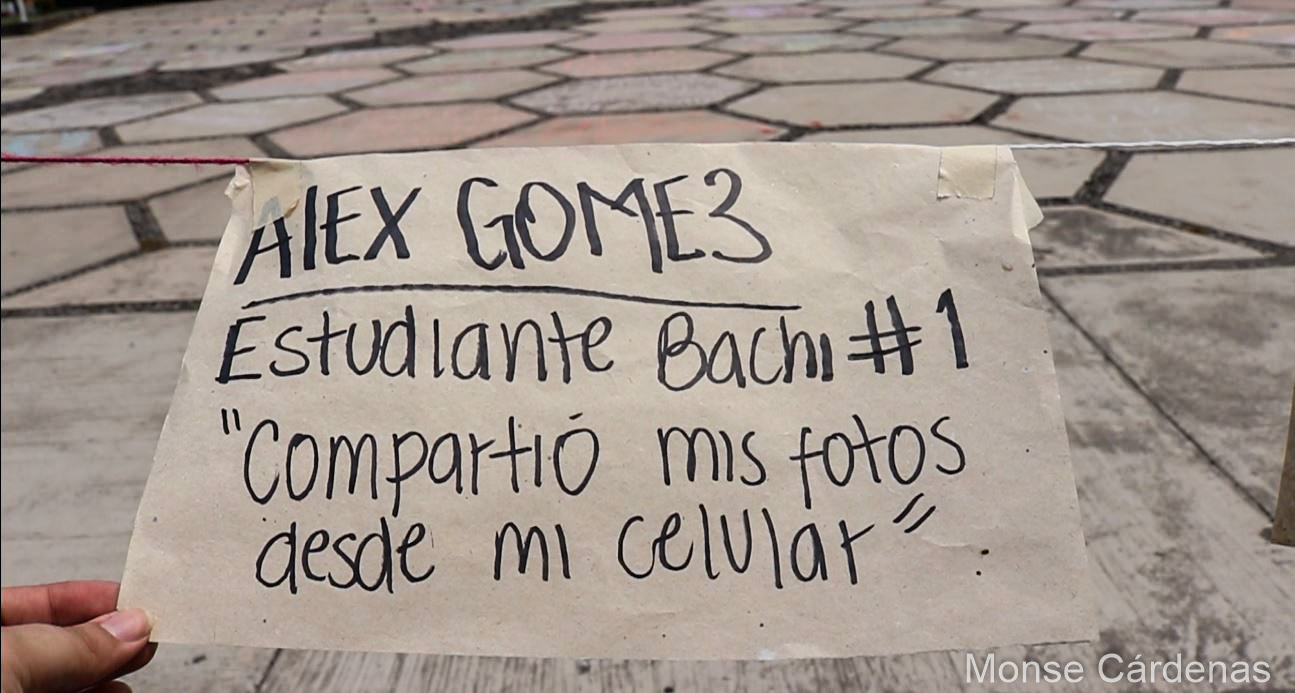 ALEX GOMEZ
Estudiante Bachi #1
"Compartió mis fotos
desde mi celular"
Monse Cárdenas